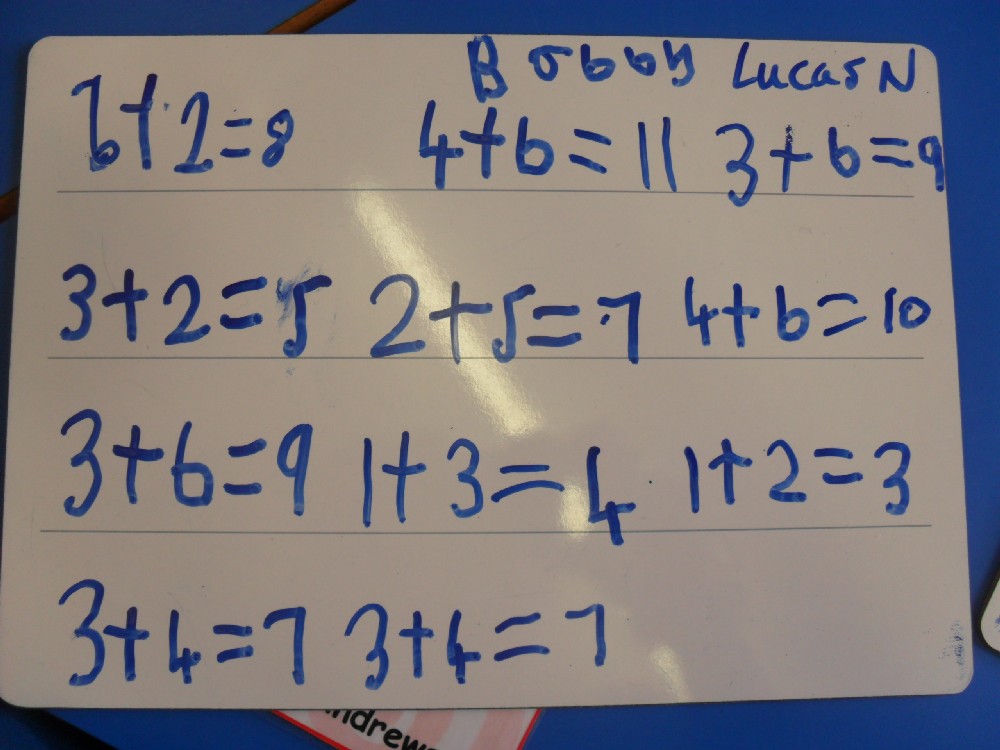 Bobby Lucas N
6+2=8 4+6=11 3+6=9
3+2=5 2+5=7 4+6=10
3+6=9 1+3=4 1+2=3
3+4=7 3+4=7